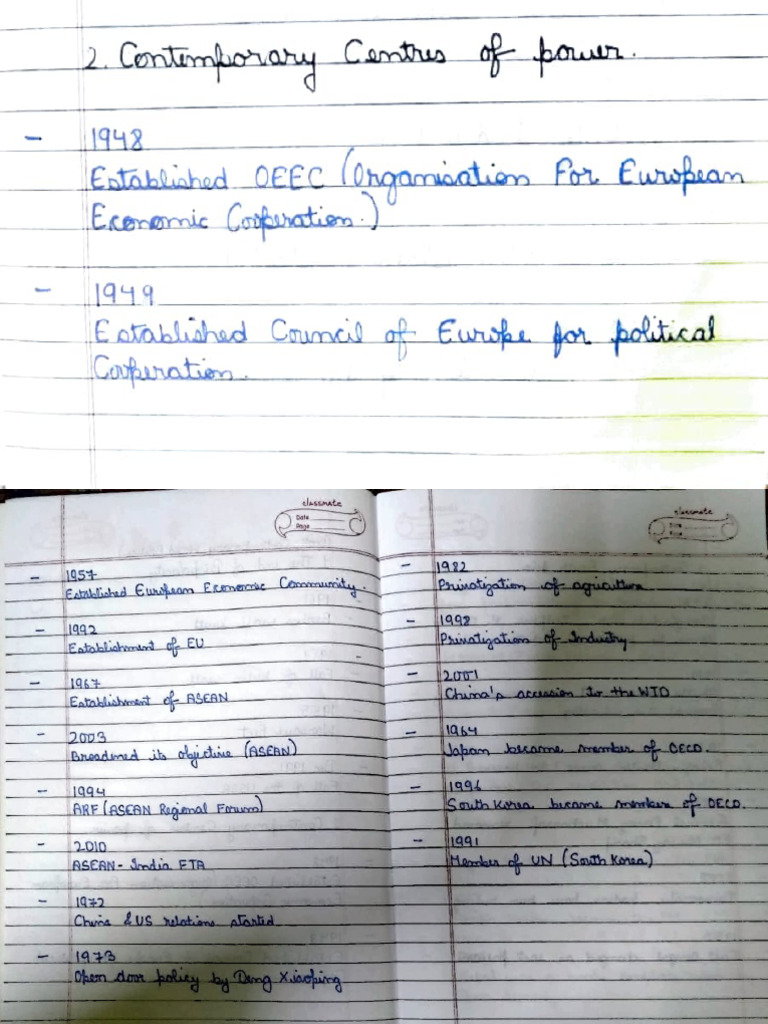 2. Contemporary Centres of power.
- 1948
Established OEEC (Organisation For European
Economic Cooperation.)
- 1949
Established Council of Europe for political
Cooperation.
classmate
Date
Page
- 1957
Established European Economic Community.
- 1992
Establishment of EU
- 1967
Establishment of ASEAN
- 2003
Broadened its objective (ASEAN)
- 1994
ARF (ASEAN Regional Forum)
- 2010
ASEAN - India FTA
- 1972
China & US relations started
- 1973
Open door policy by Deng Xiaoping
classmate
- 1982
Privatization of agriculture
- 1998
Privatization of Industry
- 2001
China's accession to the WTO
- 1964
Japan became member of OECD.
- 1996
South Korea became member of OECD.
- 1991
Member of UN (South Korea)